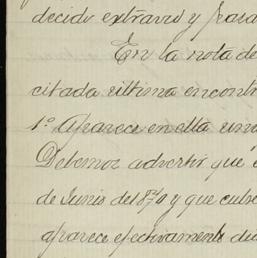 decido extravio y pasa
En la nota de
citada ultima encontr
1º Aparece en ella una
Debemos advertir que é
de Junio del 1870 y que
aparece efectivamente du